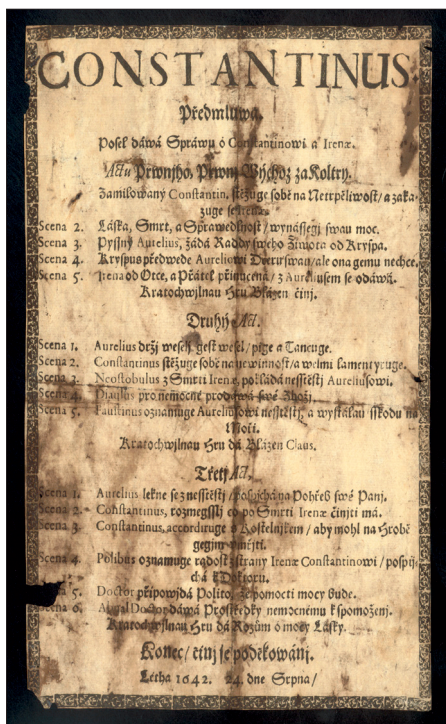 CONSTANTINUS.
Předmluwa.
Posel dáwá Spráwu ó Constantinowi a Irenæ.
Actu Prwnjho, Prwnj Wýchoz za Koltry.
Zamilowaný Constantin, stěžuge sobě na Netrpěliwost/ a zaka-
zuge se Irenæ.
Scena 2. Láska, Smrt, a Sprawedlnost/ wynássegj swau moc.
Scena 3. Pyssný Aurelius, žádá Raddy sweho Žiwota od Kryspa.
Scena 4. Kryspus předwede Aureliowi Dceru swau/ ale ona gemu nechce.
Scena 5. Irena od Otce, a Přátel přinucená/ z Aureliusem se odáwá.
Kratochwjlnau Hru Blázen činj.
Druhý Act.
Scena 1. Aurelius držj weselj, gest wesel/ pige a Tancuge.
Scena 2. Constantinus stěžuge sobě na newinnost/ a welmi lamentyruge.
Scena 3. Neostobulus z Smrti Irenæ, pokládá nesstěstj Aureliusowi.
Scena 4. pro nemocné prodáwá swé Zbožj.
Scena 5. Faustinus oznamuge Aureliusowi nesstěstj, a wystálau sskodu na
Moři.
Kratochwjlnau Hru dá Blázen Claus.
Třetj Act.
Scena 1. Aurelius lekne se z nesstěstj/ pospjchá na Pohřeb swé Panj.
Scena 2. Constantinus, rozmegsslj co po Smrti Irenæ činiti má.
Scena 3. Constantinus, accordiruge s Kostelnjkem/ aby mohl na Hrobě
gegjm vmřjti.
Scena 4. Polibus oznamuge radost z strany Irenæ Constantinowi/ pospj-
chá k Doktoru.
5. Doctor připowjdá Politoj, že pomocti mocy bude.
Scena 6. Doctor dáwá Prostředky nemocnému k spomoženj.
Kratochwjlnau Hru dá Rozům ó mocy Lásky.
Konec/ činj se poděkowánj.
Létha 1642. 24. dne Srpna/